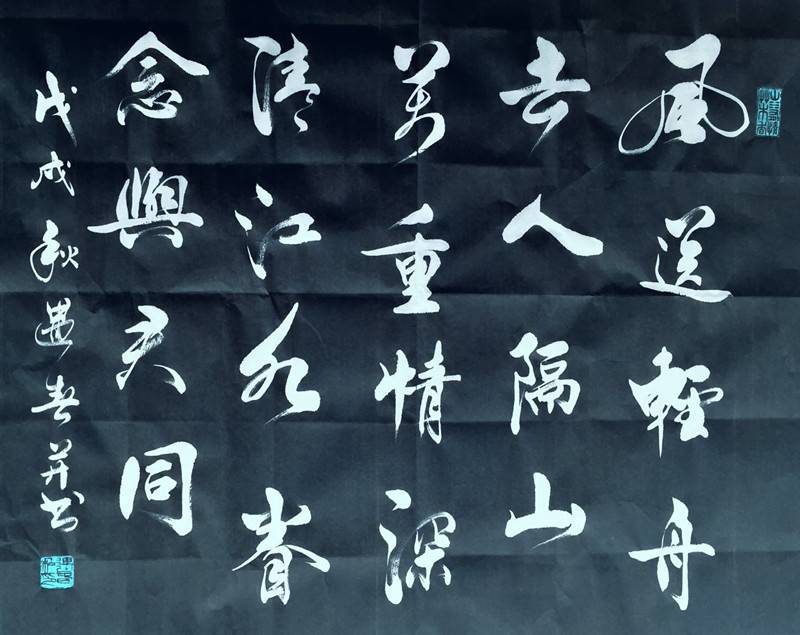 風送輕舟
去人隔山
萬重情深
清江水眷
念與君同
戊戌秋遇春并书